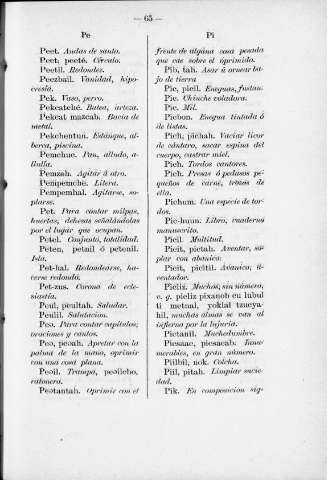 — 65 —
Pe
Peet. Andas de santo.
Peet; pecté. Círculo.
Peetil. Redondez.
Peezbail. Vanidad, hipo-
cresía.
Pek. Vaso, perro.
Pekcatché. Batea, arteza.
Pekcat mazcab. Bacía de
metal.
Pekchentun. Estanque, al-
berca, piscina.
Pemchuc. Pan, alludo, a-
llulla.
Pemzah. Agitar á otro.
Pempemché. Litera.
Pempemhal. Agitarse, so-
plarse.
Pet. Para contar milpas,
huertas; dehesas señalándolas
por el lugar que ocupan.
Petel. Conjunto, totalidad.
Peten, petnil ó petenil.
Isla.
Pet-hal. Redondearse, ha-
cerse redondo.
Pet-zus. Corona de ecle-
siastía.
Peul, peultah. Saludar.
Peulil. Salutacion.
Peɔ. Para contar capítulos;
oraciones y cantos.
Peɔ, peɔah. Apretar con la
palma de la mano, oprimir
con una cosa plana.
Peɔil. Trampa, peɔilcho,
ratonera.
Peɔtantah. Oprimir con el
Pi
frente de alguna cosa pesada
que cae sobre el oprimido.
Pib, tah. Asar ú ornear ba-
jo de tierra
Pic, picil. Enaguas, fustan.
Pic. Chinche voladora.
Pic. Mil.
Picbon. Enagua tintada ó
de listas.
Pich, pichah. Vaciar licor
de cántaro, sacar espina del
cuerpo, castrar miel.
Pich. Tordos cantores.
Pich. Presas ó pedazos pe-
queños de carne, trenes de
ella.
Pichum. Una especie de tor-
dos.
Pic-huun. Libro, cuaderno
manuscrito.
Picil. Multitud.
Picit, pictah. Aventar, so-
plar con abanico.
Picit, picitil. Avanico, a-
ventador.
Picliz. Muchos, sin número,
e. g. picliz pixanob cu lubul
ti metnal, yoklal tzucya-
hil, muchas almas se van al
infierno por la lujuria.
Pictanil. Muchedumbre.
Piczaac, piczacab. Innu-
merables, en gran número.
Piilbil, nok. Colcha.
Piil, pitah. Limpiar sucie-
dad.
Pik. En composicion sig-